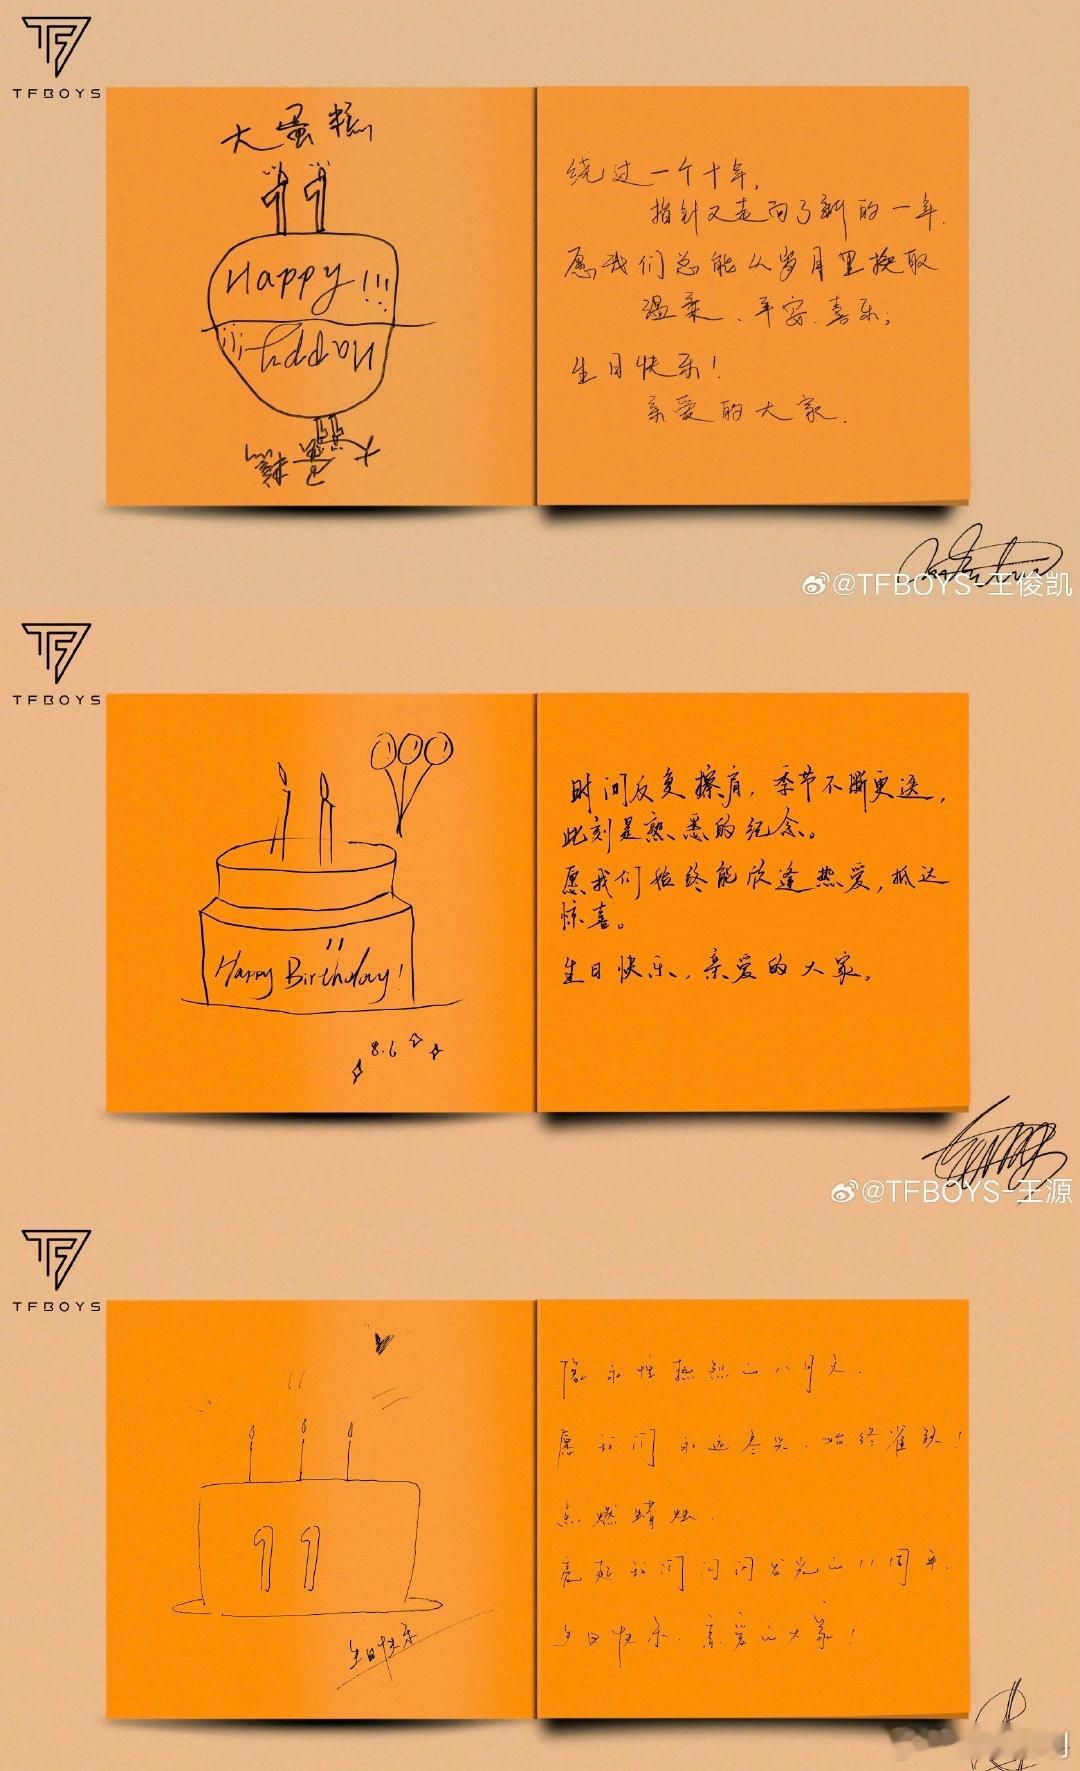 TFBOYS
大蛋糕
11
Happy!!!
Happy!!!
大蛋糕
绕过一个十年,
指针又走向了新的一年.
愿我们总能从岁月里换取
温柔、平安、喜乐;
生日快乐!
亲爱的大家.
@TFBOYS-王俊凯
TFBOYS
Happy Birthday!
8.6
时间反复擦肩,季节不断更迭,
此刻是熟悉的纪念。
愿我们始终能欣逢热爱,抵达
惊喜。
生日快乐,亲爱的大家。
@TFBOYS-王源
TFBOYS
11
生日快乐
热烈的八月天.
愿我们永远尽兴,始终雀跃!
点燃蜡烛.
亮起我们闪闪发光的11周年.
生日快乐,亲爱的大家!